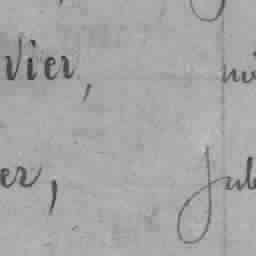 vier, mi
er, Jul